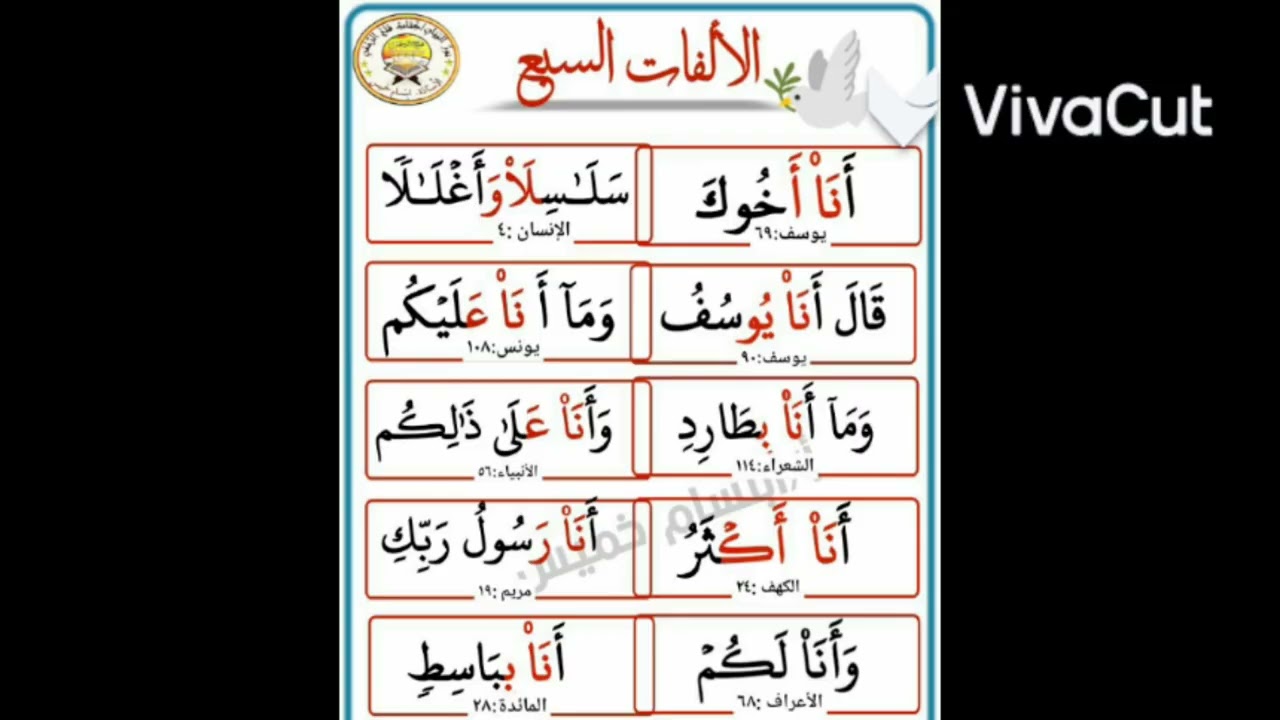 الألفات السبع
VivaCut
أَنَا۠ أَخُوكَ
يوسف:٦٩
سَلَـٰسِلَا۟وَأَغْلَـٰلًا
الإنسان :٤
قَالَ أَنَا۠ يُوسُفُ
يوسف:٩٠
وَمَآ أَنَا۠ عَلَيْكُم
يونس:١٠٨
وَمَآ أَنَا۠ بِطَارِدِ
الشعراء:١١٤
وَأَنَا۠ عَلَىٰ ذَٰلِكُم
الأنبياء:٥٦
أَنَا۠ أَكْثَرُ
الكهف :٣٤
أَنَا۠ رَسُولُ رَبِّكِ
مريم :١٩
وَأَنَا۠ لَكُمْ
الأعراف :٦٨
أَنَا۠ بِبَاسِطٍ
المائدة:٢٨
ابتسام خميس